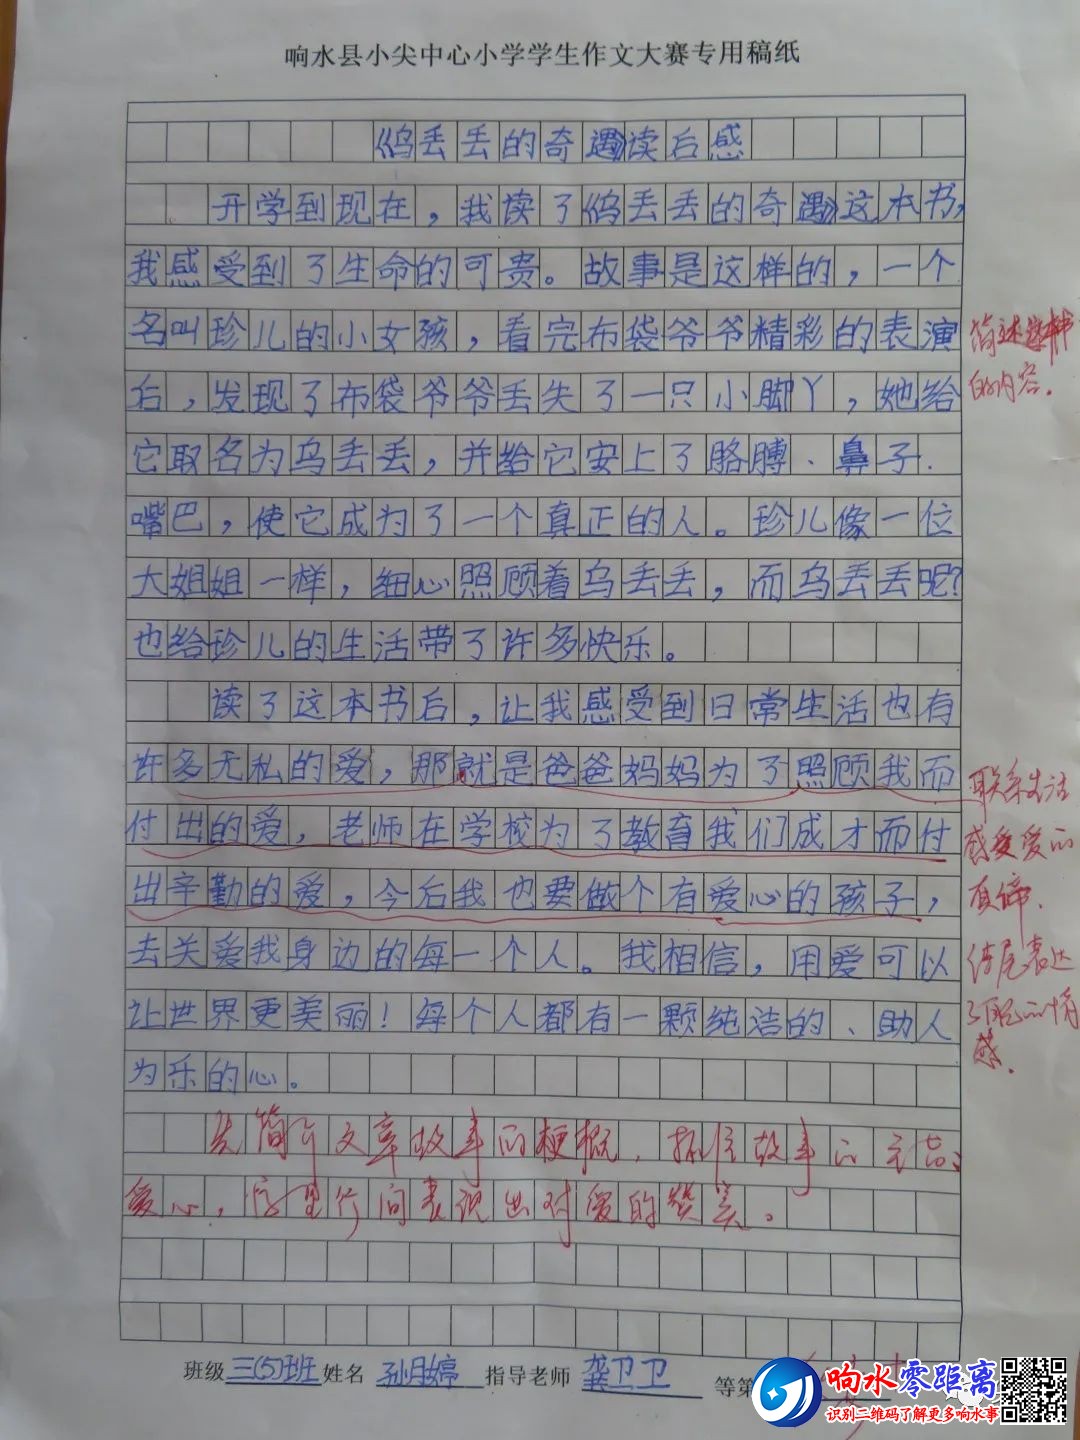 响水县小尖中心小学学生作文大赛专用稿纸
《乌丢丢的奇遇》读后感
开学到现在，我读了《乌丢丢的奇遇》这本书，
我感受到了生命的可贵。故事是这样的，一个
名叫珍儿的小女孩，看完布袋爷爷精彩的表演
后，发现了布袋爷爷丢失了一只小脚丫，她给
它取名为乌丢丢，并给它安上了胳膊、鼻子、
嘴巴，使它成为了一个真正的人。珍儿像一位
大姐姐一样，细心照顾着乌丢丢，而乌丢丢呢？
也给珍儿的生活带了许多快乐。
读了这本书后，让我感受到日常生活也有
许多无私的爱，那就是爸爸妈妈为了照顾我而
付出的爱，老师在学校为了教育我们成才而付
出辛勤的爱，今后我也要做个有爱心的孩子，
去关爱我身边的每一个人。我相信，用爱可以
让世界更美丽！每个人都有一颗纯洁的、助人
为乐的心。
先简介文章故事的梗概，抓住故事的主旨：
爱心，字里行间表现出对爱的赞美。
简述这本书
的内容。
联系生活
感受爱的
真谛。
结尾表达
了自己的情
感。
班级 三(5)班 姓名 孙月婷 指导老师 龚卫卫 等第
响水零距离
识别二维码了解更多响水事